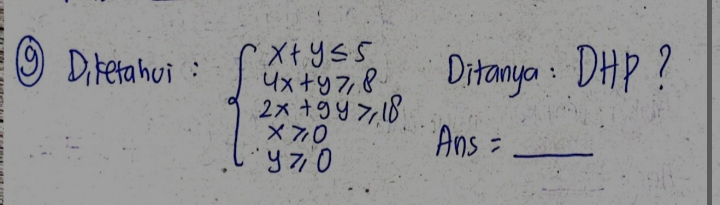 ⑨ Diketahui : { x + y ≤ 5
4x + y ≥ 8
2x + 9y ≥ 18
x ≥ 0
y ≥ 0
Ditanya : DHP ?
Ans = ____